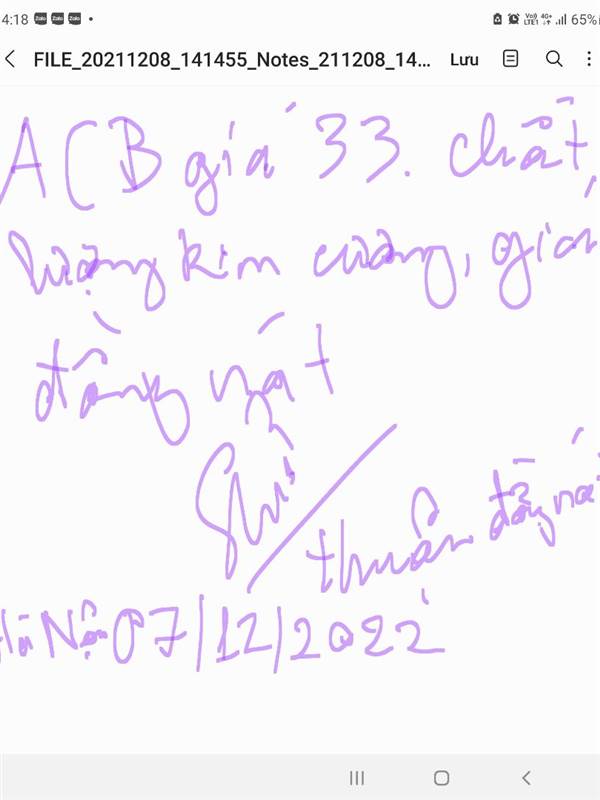 4:18 Zalo Zalo Zalo 65%
FILE_20211208_141455_Notes_211208_14... Lưu
ACB giá 33. chất
lượng kim cương, giá
đồng nát
thuần đồng nát
Hà Nội 07/12/2022